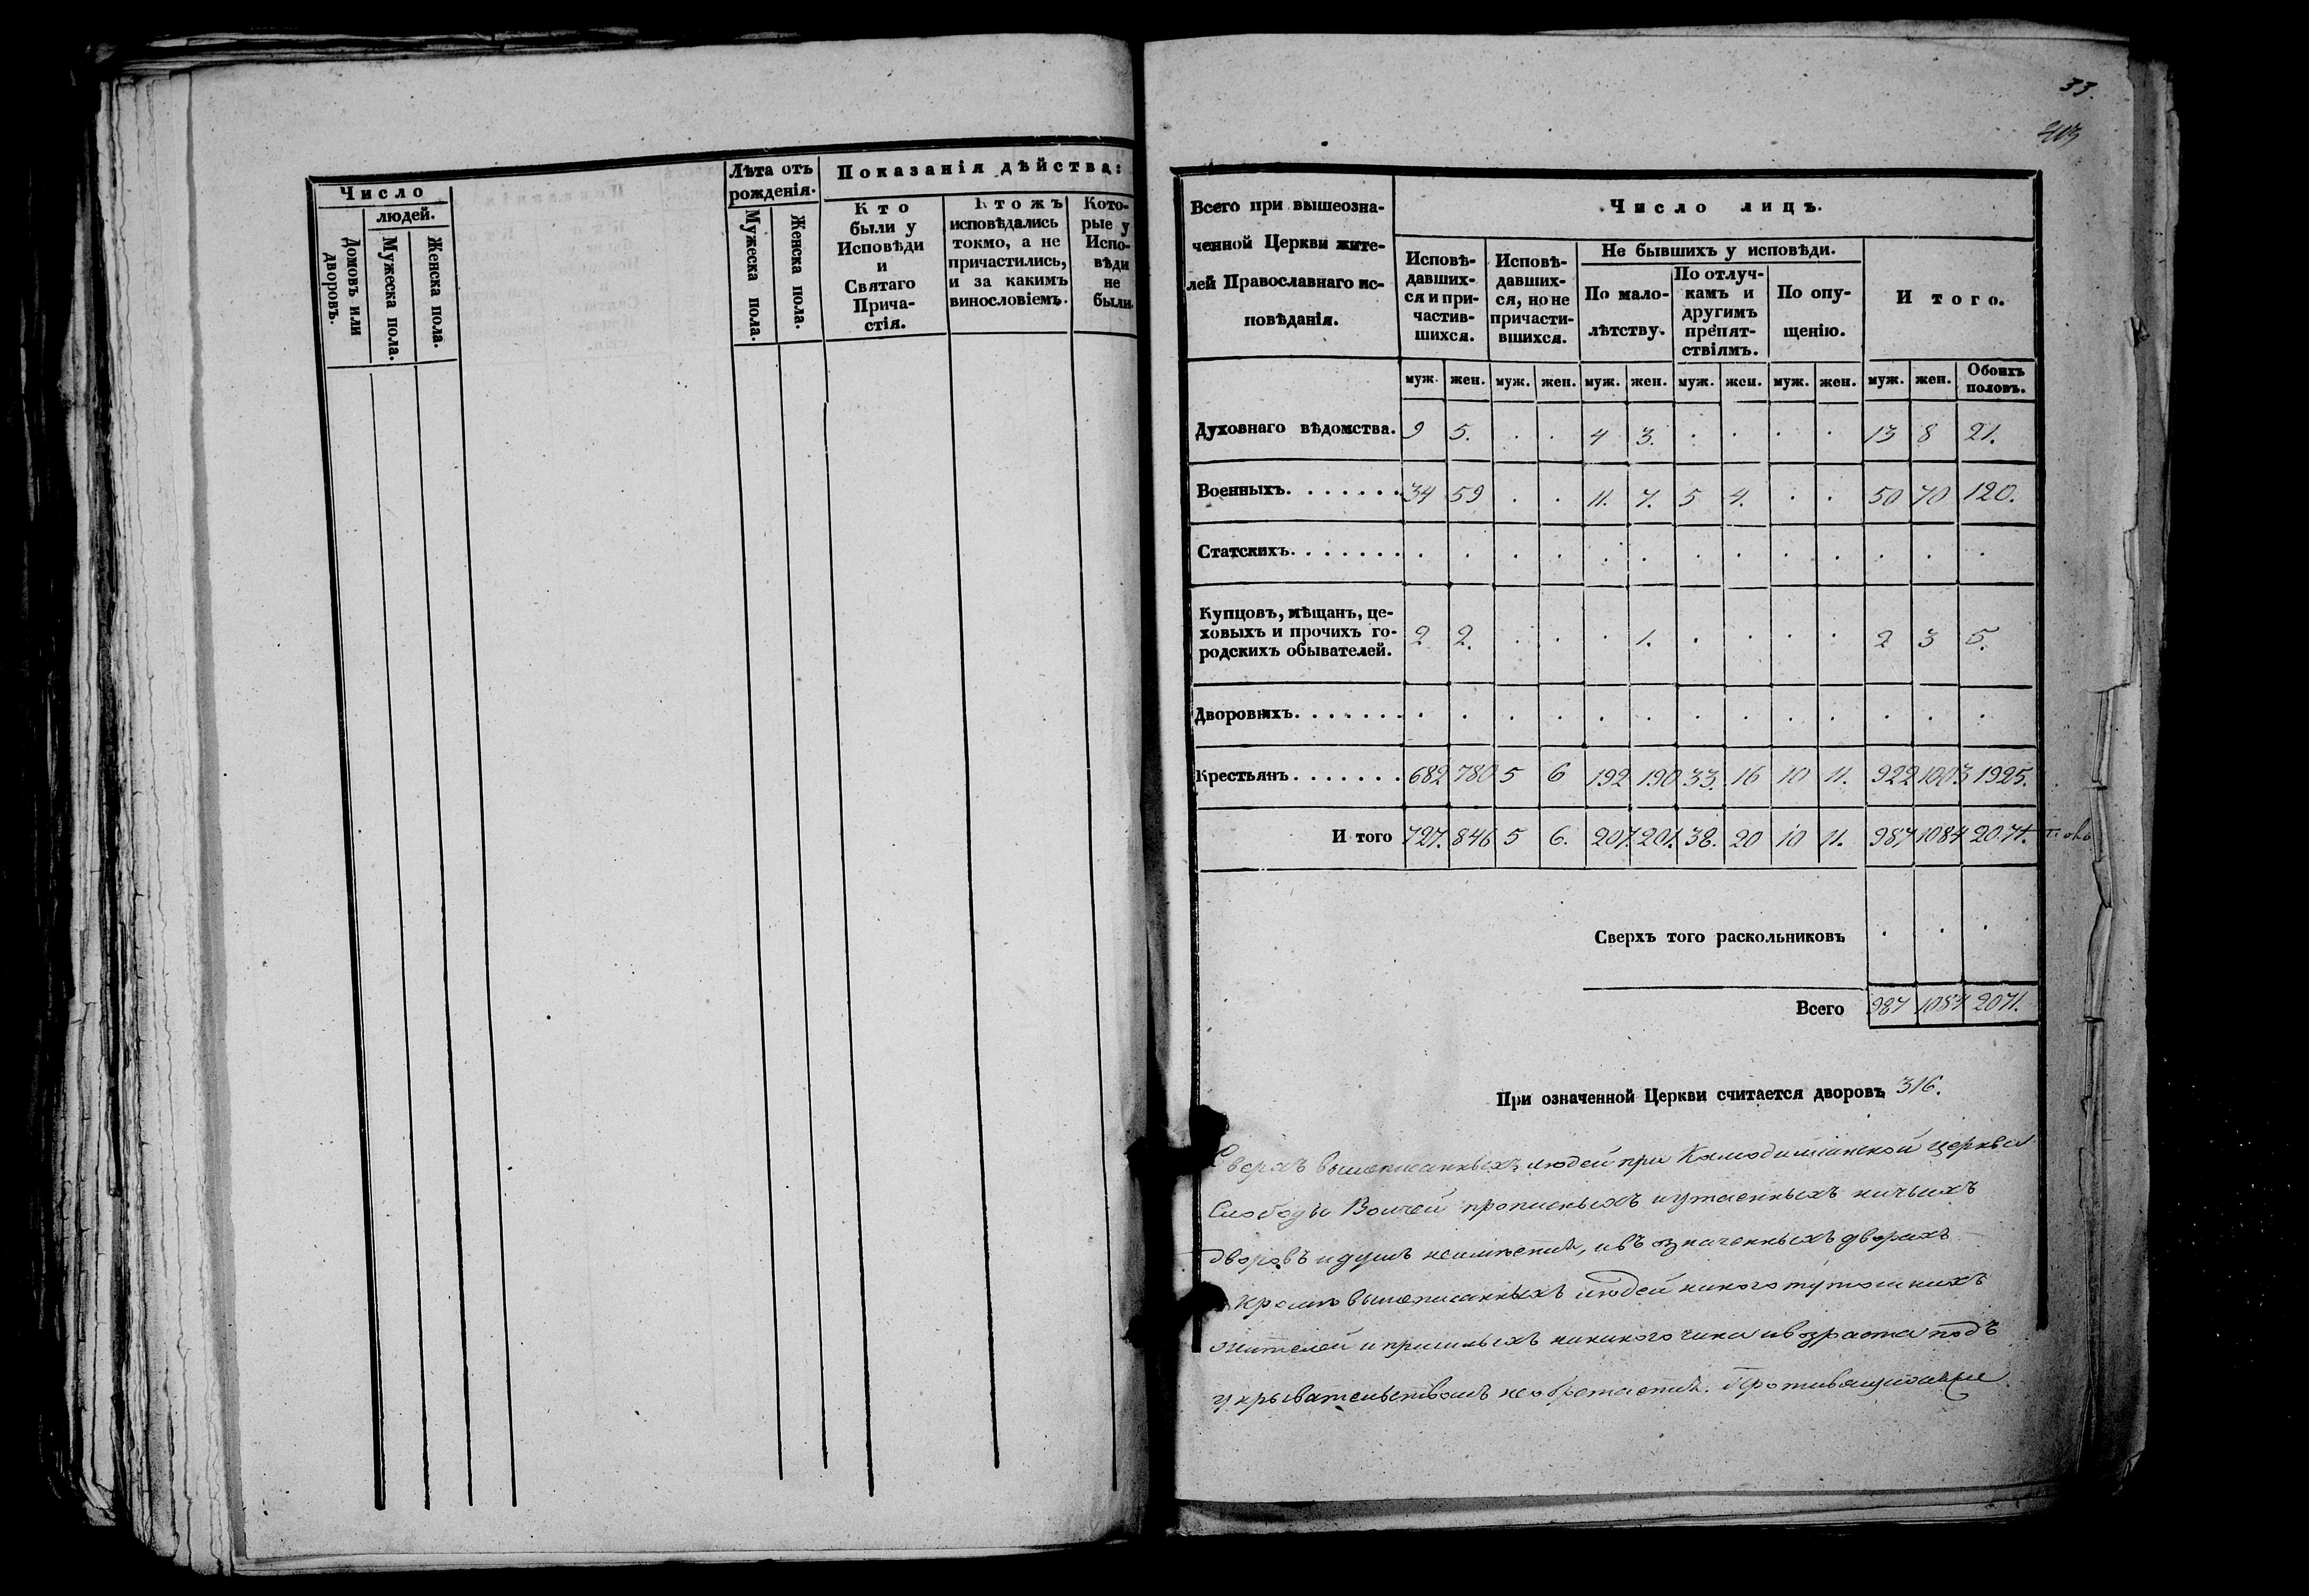 Число
людей.
Домовъ или дворовъ.
Мужеска пола.
Женска пола.
Лѣта отъ рожденія.
Мужеска пола.
Женска пола.
Показанія дѣйства:
Кто
были у
Исповѣди
и
Святаго
Прича-
стія.
Ктожъ
исповѣдались
токмо, а не
причастились,
и за какимъ
винословіемъ.
Кото-
рые у
Испо-
вѣди
не
были.
33.
Всего при вышеозна-
ченной Церкви жите-
лей Православнаго ис-
повѣданія.
Число лицъ.
Исповѣ-
давших-
ся и при-
частив-
шихся.
Исповѣ-
давших-
ся, но не
причасти-
вшихся.
Не бывшихъ у исповѣди.
По мало-
лѣтству.
По отлуч-
камъ и
другимъ
препят-
ствіямъ.
По опу-
щенію.
И того.
муж. жен. муж. жен. муж. жен. муж. жен. муж. жен. муж. жен. Обоихъ половъ.
Духовнаго вѣдомства. 9 5. . . 4 3. . . . . 13 8 21.
Военныхъ. . . . . . . 34 59 . . 11. 7. 5 4. . . 50 70 120.
Статскихъ. . . . . . . . . . . . . . . . . . . .
Купцовъ, мѣщанъ, це-
ховыхъ и прочихъ го-
родскихъ обывателей.
2 2. . . . 1. . . . . 2 3 5.
Дворовыхъ. . . . . . . . . . . . . . . . . . . .
Крестьянъ. . . . . . . 682 780 5 6 192 190 33. 16 10 11. 922 1003 1925.
И того 727. 846 5 6. 207. 201. 38. 20 10 11. 987 1084 2071.
Сверхъ того раскольниковъ . . .
Всего 987 1084 2071.
При означенной Церкви считается дворовъ 316.
Сверхъ вышеписанныхъ людей при церкви
Слободы Волчей прописныхъ и утаенныхъ ничьихъ
дворовъ и душъ неимѣется, и въ означенныхъ дворахъ
кромѣ вышеписанныхъ людей никого тутошнихъ
жителей и пришлыхъ никакого чина и возраста подъ
укрывательствомъ необретается.